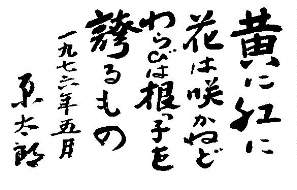 黄に紅に
花は咲かねど
わらびは根っ子を
誇るもの
一九七六年五月
原太郎